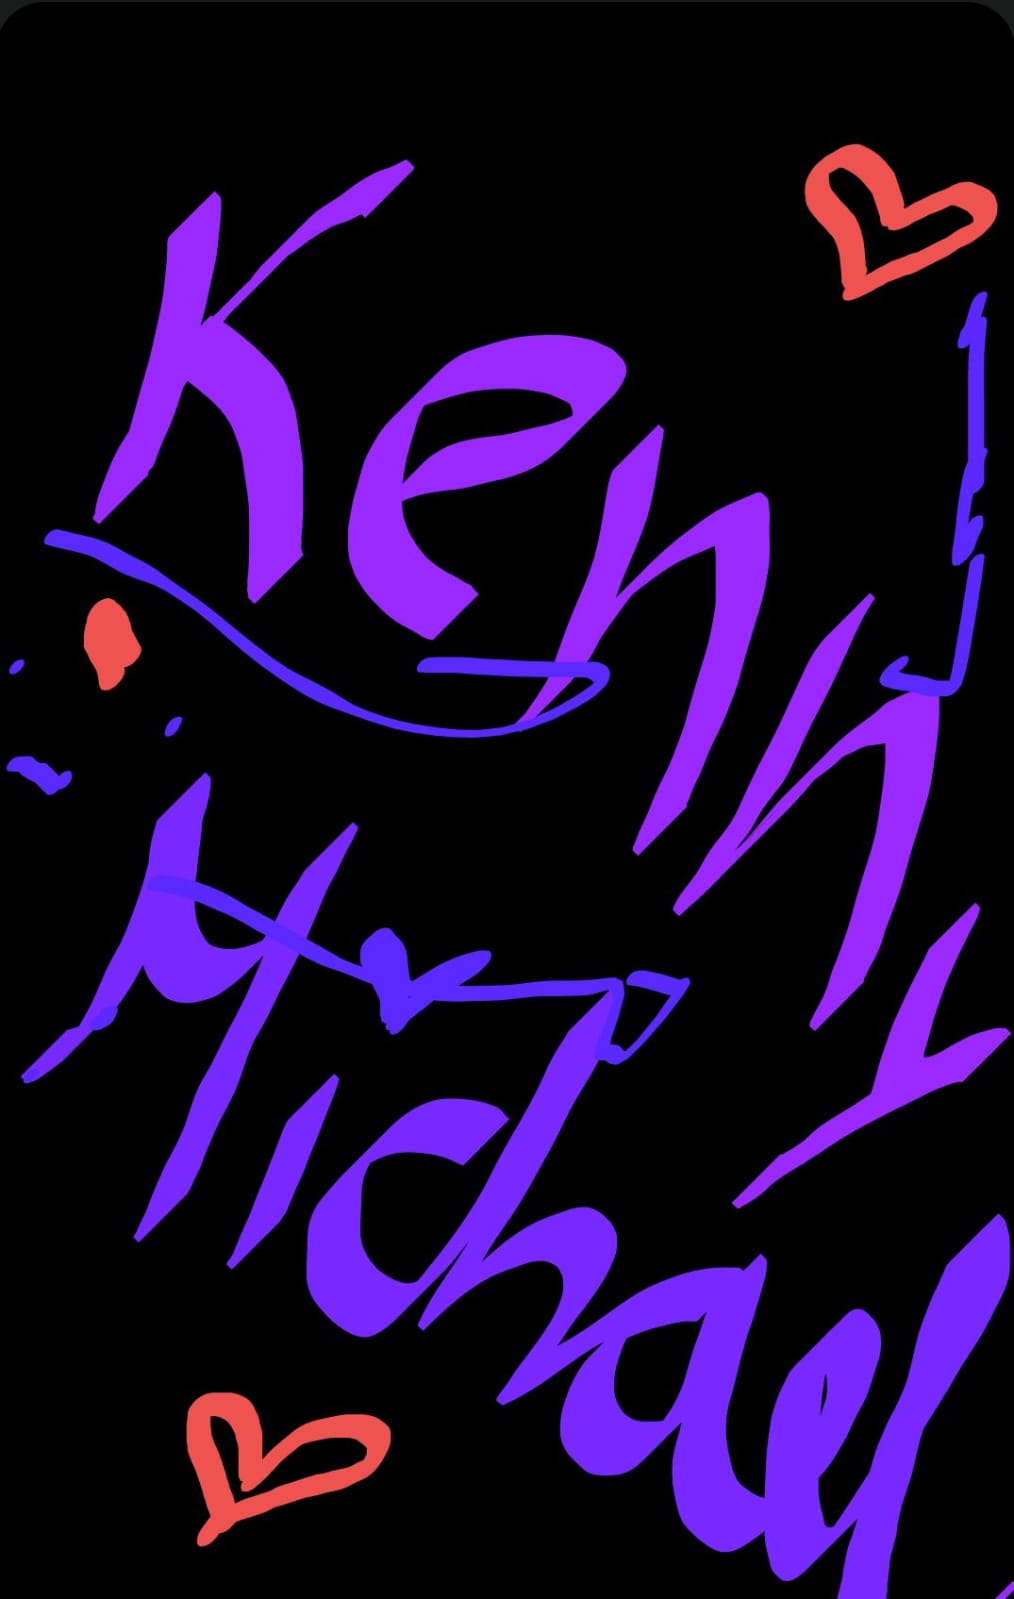 Kenny
Michael